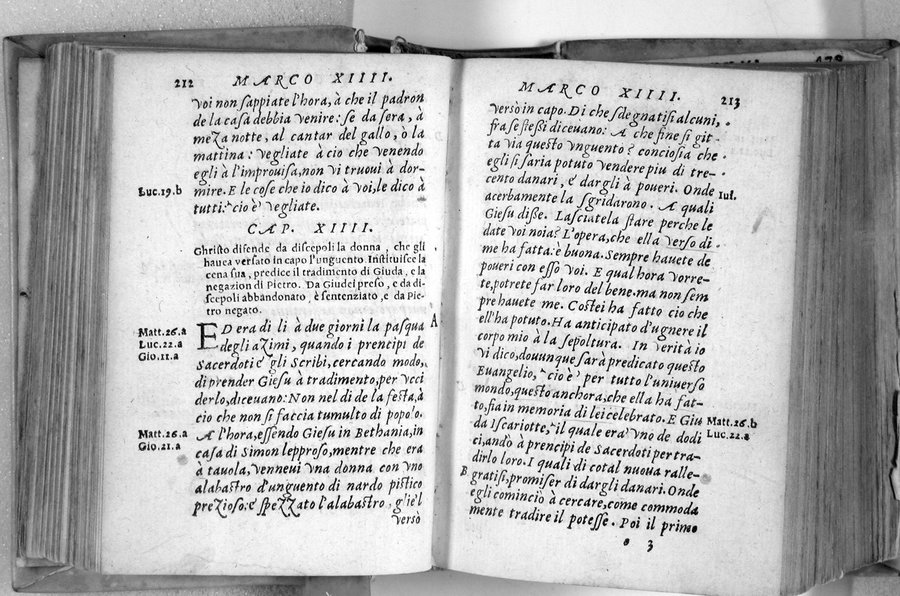 212 MARCO XIIII.
voi non ſappiate l'hora, à che il padron
de la caſa debbia venire: ſe da ſera, a
mezanotte, al cantar del gallo, ò la
mattina: vegliate à cio che venendo
egli à l'improuiſa, non vi truoui à dor-
Luc.19.b mire. E le coſe che io dico à voi, le dico à
tutti: cio è vegliate.
CAP. XIIII.
Christo difende da diſcepoli la donna, che gli
hauea verſato in capo l'unguento. Inſtituiſce la
cena ſua, predice il tradimento di Giuda, e la
negazion di Pietro. Da Giudei preſo, e da di-
ſcepoli abbandonato, è ſentenziato, e da Pie-
tro negato.
Matt.26.a ED era di li à due giorni la paſqua A
Luc.22.a degli azimi, quando i prencipi de
Gio.11.a Sacerdoti e gli Scribi, cercando modo,
di prender Gieſu à tradimento, per vcci
derlo, diceuano: Non nel di de la feſta, à
cio che non ſi faccia tumulto di popolo.
Matt.26.a A l'hora, eſſendo Gieſu in Bethania, in
Gio.21.a caſa di Simon leproſo, mentre che era
à tauola, venneui vna donna con vno
alabaſtro d'unguento di nardo piſtico
prezioſo: e ſpezzato l'alabaſtro, glie'l
versò
MARCO XIIII. 213
versò in capo. Di che ſdegnatiſi alcuni,
fra ſe ſteſſi diceuano: A che fine ſi git
ta via queſto vnguento? concioſia che
egli ſi ſaria potuto vendere piu di tre-
cento danari, e dargli à poueri. Onde
acerbamente la ſgridarono. A quali Iul.
Gieſu diſſe. Laſciatela ſtare perche le
date voi noia? L'opera, che ella verſo di
me ha fatta: è buona. Sempre hauete de
poueri con eſſo voi. E qual hora vorre-
te, potrete far loro del bene. ma non ſem
pre hauete me. Coſtei ha fatto cio che
ell'ha potuto. Ha anticipato d'ugnere il
corpo mio à la ſepoltura. In verità io
vi dico, douunque ſarà predicato queſto
Euangelio, cio è per tutto l'uniuerſo
mondo, queſto anchora, che ella ha fat-
to, ſia in memoria di lei celebrato. E Giu Matt.26.b
da Iſcariotte, il quale era vno de dodi Luc.22.a
ci, andò à prencipi de Sacerdoti per tra-
dirlo loro. I quali di cotal nuoua ralle-
B gratiſi, promiſer di dargli danari. Onde
egli cominciò à cercare, come commoda
mente tradire il poteſſe. Poi il primo
o 3